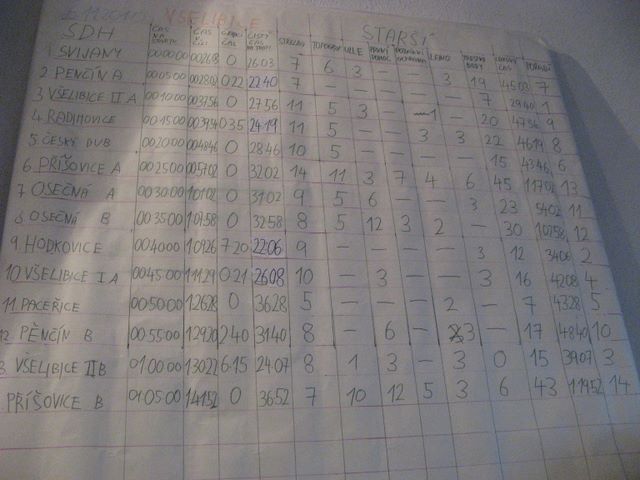 VŠELIBICE
STARŠÍ
SDH ČAS NA STARTU ČAS V CÍLI ČEKACÍ ČAS ČISTÝ ČAS NA TRATI STŘELBA TOPOGRAFIE UZLE PRVNÍ POMOC POŽÁRNÍ OCHRANA LANO TRESTNÉ BODY CELKOVÝ ČAS POŘADÍ
1 SVIJANY 00:00:00 0 26:03 7 6 3 — — 3 19 45:03 7
2 PENČÍN A 00:05:00 0:22 22:40 7 — — — — — 7 29:40 1
3 VŠELIBICE II A 00:10:00 0 27:56 11 5 3 — 1 — 20 47:56 9
4 RADIMOVICE 00:15:00 0:35 24:19 11 5 — — 3 3 22 46:19 8
5 ČESKÝ DUB 00:20:00 0 28:46 10 5 — — — — 15 43:46 6
6 PŘÍŠOVICE A 00:25:00 0 32:02 14 11 3 7 4 6 45 13
7 OSEČNÁ A 00:30:00 0 31:02 9 5 6 — — 3 23 54:02 11
8 OSEČNÁ B 00:35:00 0 32:58 8 5 12 3 2 — 30 12
9. HODKOVICE 00:40:00 1:09:26 7:20 22:06 9 — — — — 3 12 34:06 2
10 VŠELIBICE I A 00:45:00 1:11:29 0:21 26:08 10 — 3 — — 3 16 42:08 4
11. PACEŘICE 00:50:00 1:26:28 0 36:28 5 — — — 2 — 7 43:28 5
12 PĚNČÍN B 00:55:00 1:29:20 2:40 31:40 8 — 6 — 3 — 17 48:40 10
3 VŠELIBICE II B 01:00:00 1:30:22 6:15 24:07 8 1 3 — 3 0 15 39:07 3
PŘÍŠOVICE B 01:05:00 1:41:52 0 36:52 7 10 12 5 3 6 43 1:19:52 14